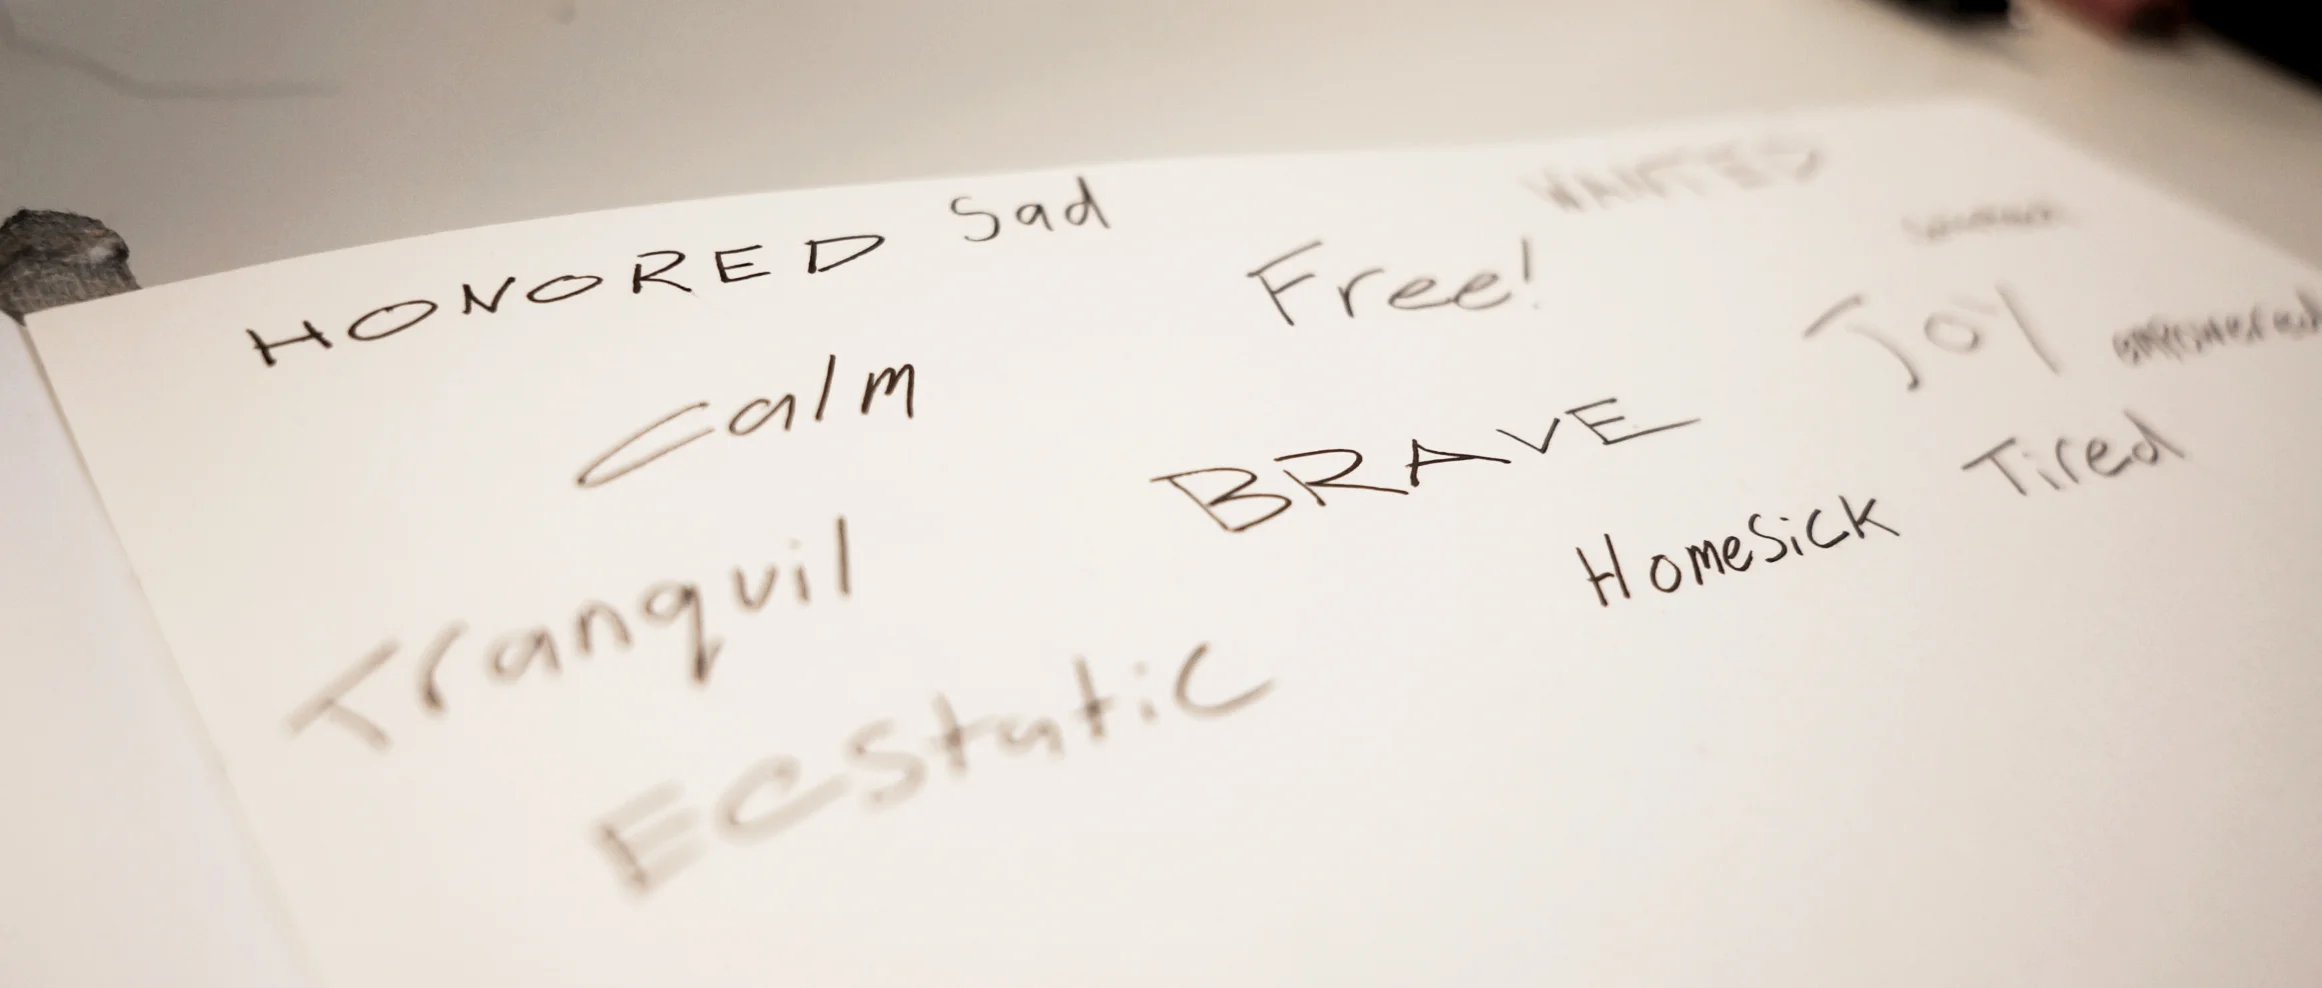 HONORED Sad
Free!
WANTED
Calm
BRAVE
JOY
empowered
Tranquil
HomeSick
Tired
Ecstatic